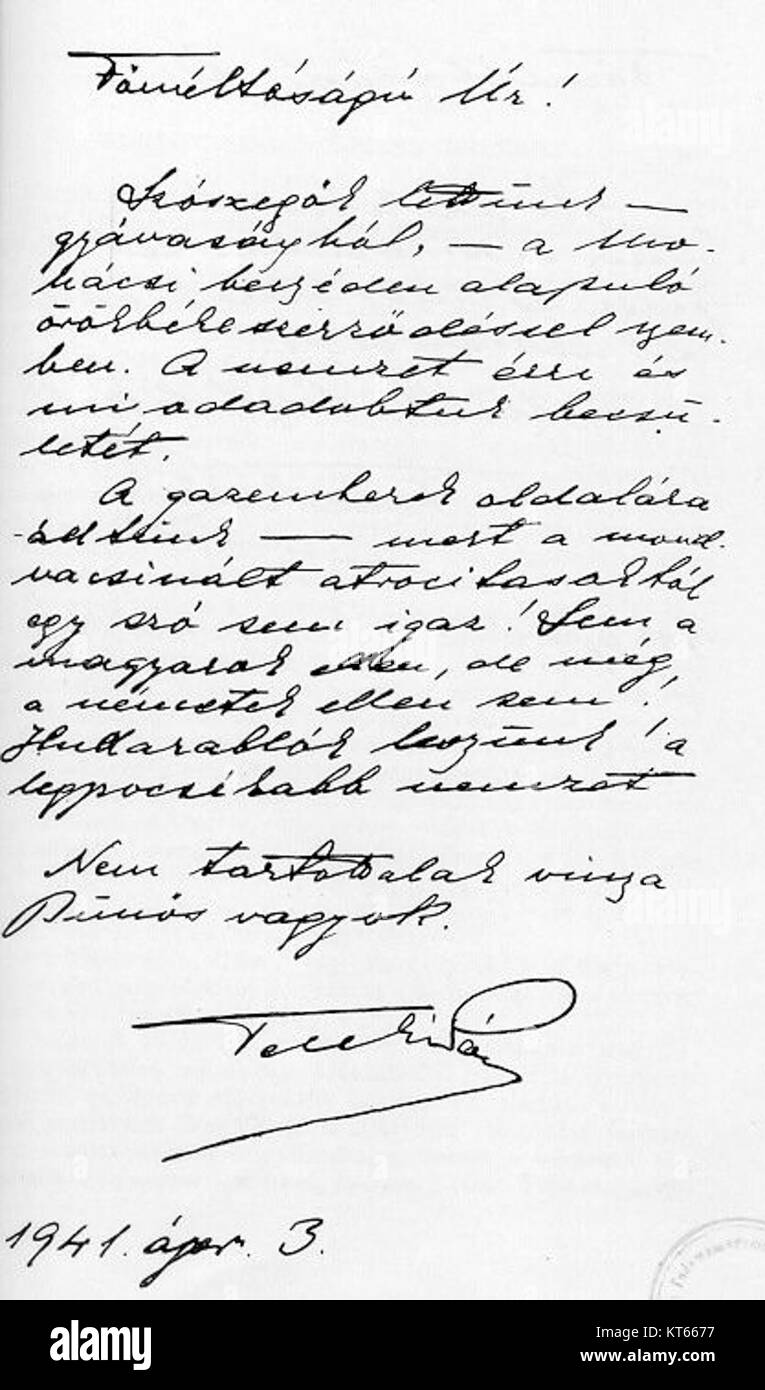 Főméltóságú Úr!
Szószegők lettünk —
gyávaságból, — a Mo-
hácsi beszéden alapuló
örökbékeszerződéssel szem-
ben. A nemzet érzi és
mi odadobtuk becsü-
letét.
A gazemberek oldalára
álltunk — mert a mond-
vacsinált atrocitásokból
egy szó sem igaz! Sem a
magyarok ellen, de még
a németek ellen sem!
Hullarablók leszünk! a
legpocsékabb nemzet
Nem tartottalak vissza
Bűnös vagyok.
Teleki Pál
1941. ápr. 3.
alamy
Image ID: KT6677
www.alamy.com